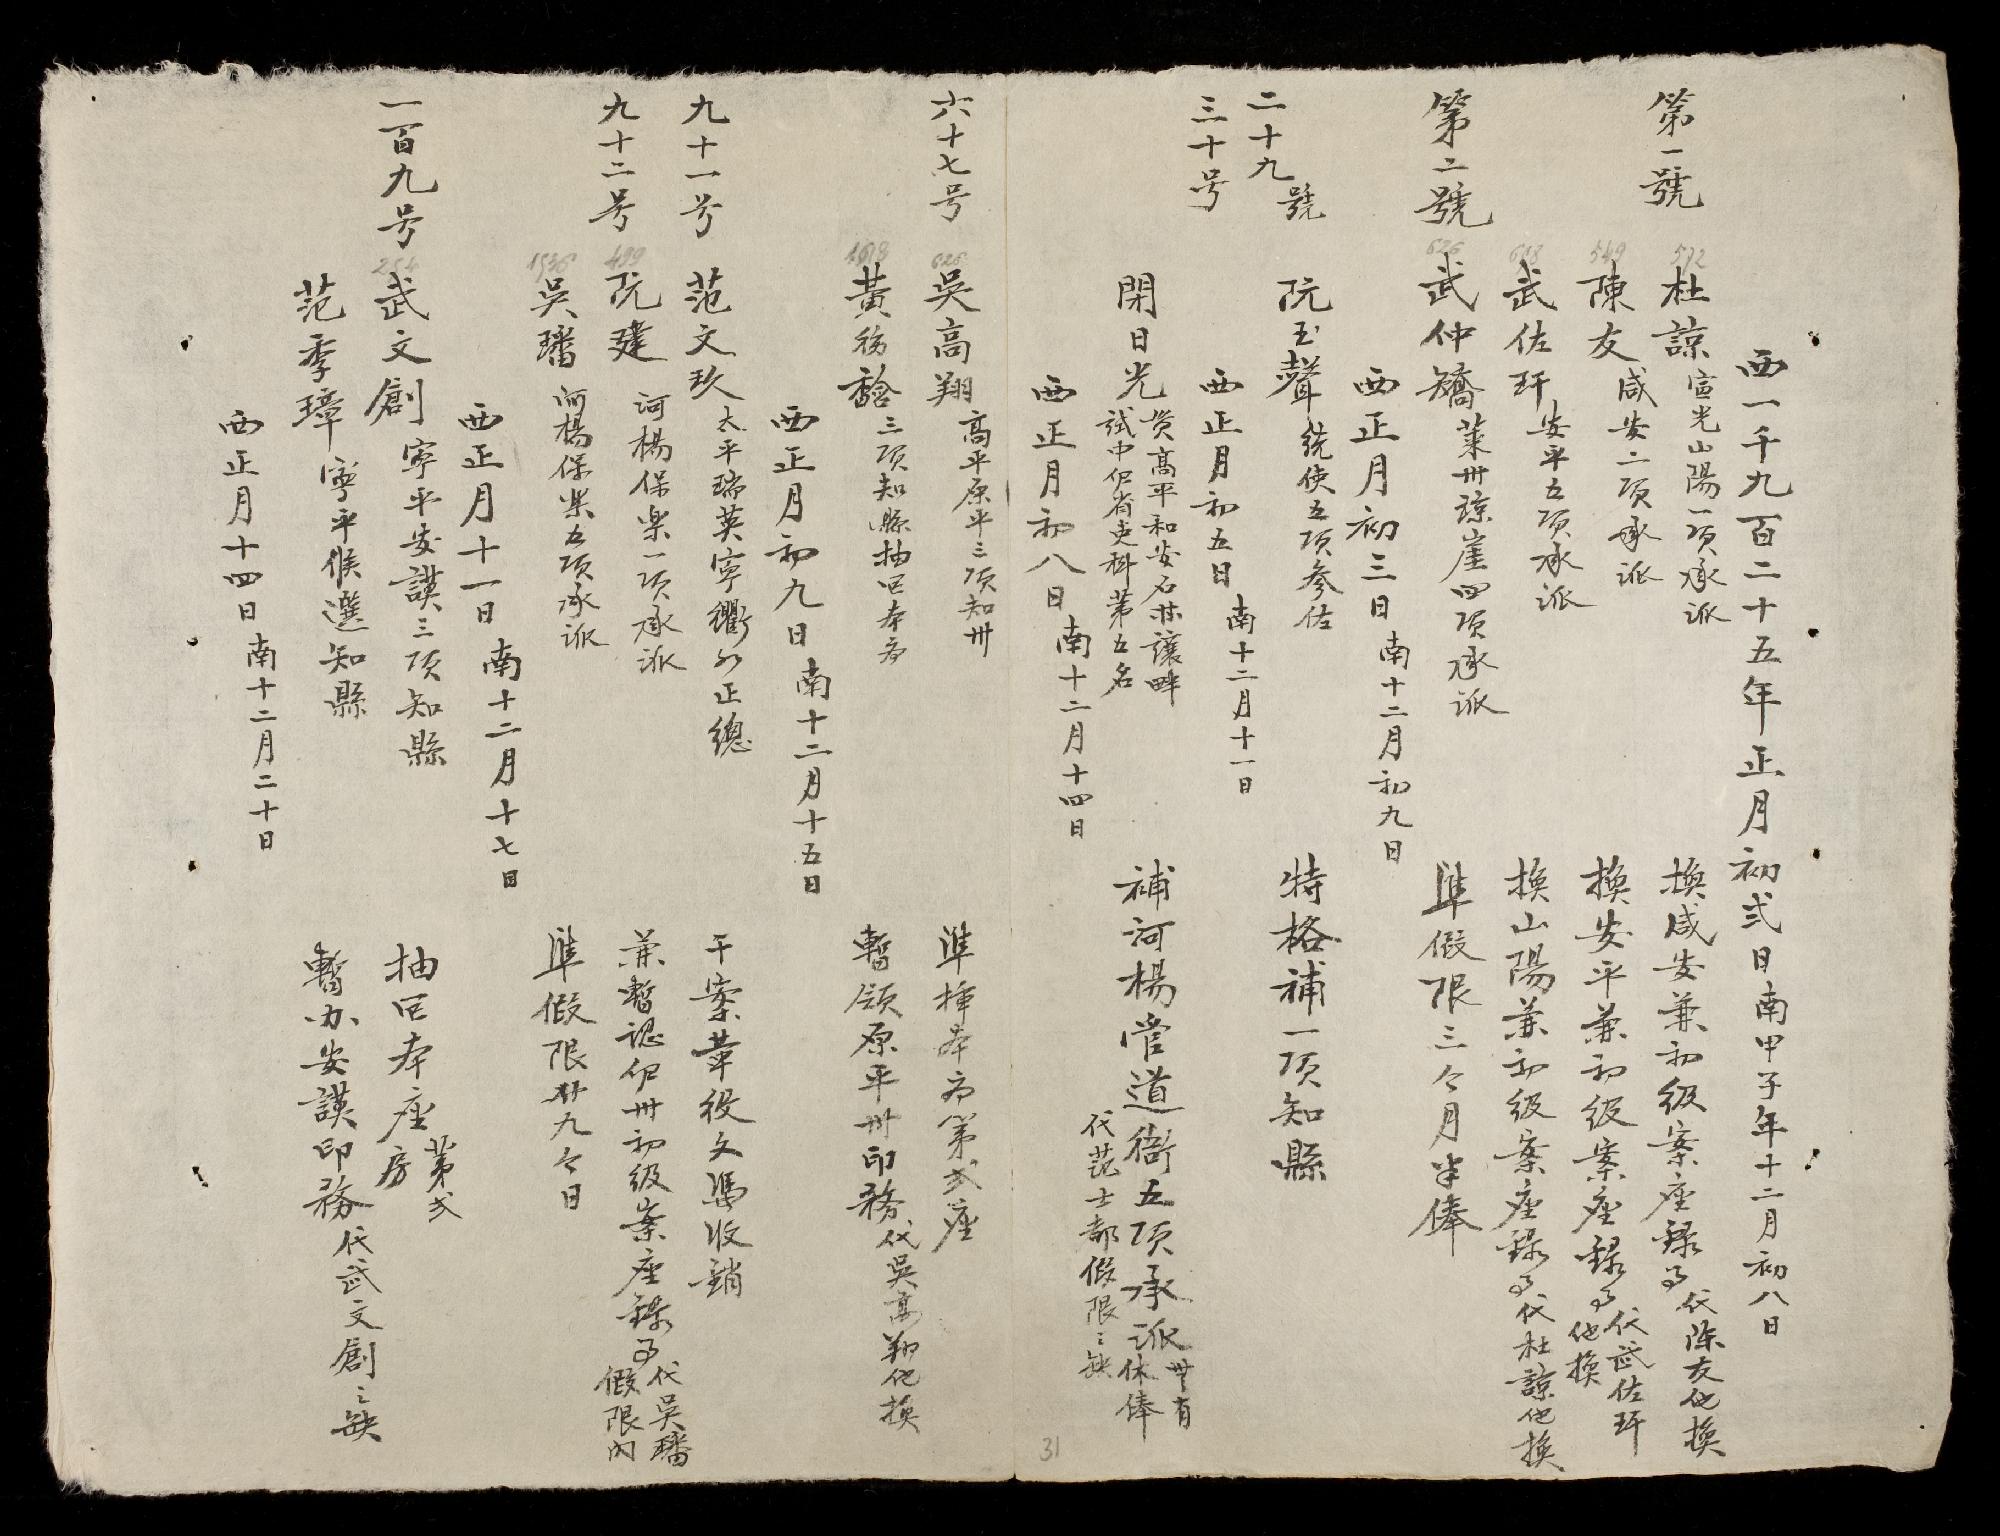 西一千九百二十五年正月初弍日南甲子年十二月初八日
第一號
572
杜諒 宣光山陽一項承派 換咸安兼初級案座録事 代陳友他換
549
陳友 咸安二項承派 換安平兼初級案座録事 代武佐玕他換
618
武佐玕 安平五項承派 換山陽兼初級案座録事 代杜諒他換
第二號
626
武仲矯 萊州琼崖四項承派 準假限三个月半俸
西正月初三日 南十二月初九日
二十九號
阮玉聲 統使五項参佐 特格補一項知縣
西正月初五日 南十二月十一日
三十号
閉日光 貫高平和安石林讓畔 試中伱省吏科第五名 補河楊管道衙五項承派 卅有休俸 代范士都假限之缺
西正月初八日 南十二月十四日
31
六十七号
626
吳高翔 高平原平三項知州 準揮本府第弍座
1618
黃務 三項知縣抽回本府 暫領原平州印務 代吳高翔他換
西正月初九日 南十二月十五日
九十一号
范文玖 太平瑞英寧衢外正總 干案革役文馮收銷
九十二号
499
阮建 河楊保樂一項承派 兼暫認伱州初級案座録事 代吳璠假限內
1536
吳璠 河楊保樂五項承派 準假限廾九个日
西正月十一日 南十二月十七日
一百九号
254
武文創 寧平安謨三項知縣 抽回本座房第弍
范季璋 寧平候選知縣 暫办安謨印務 代武文創之缺
西正月十四日 南十二月二十日